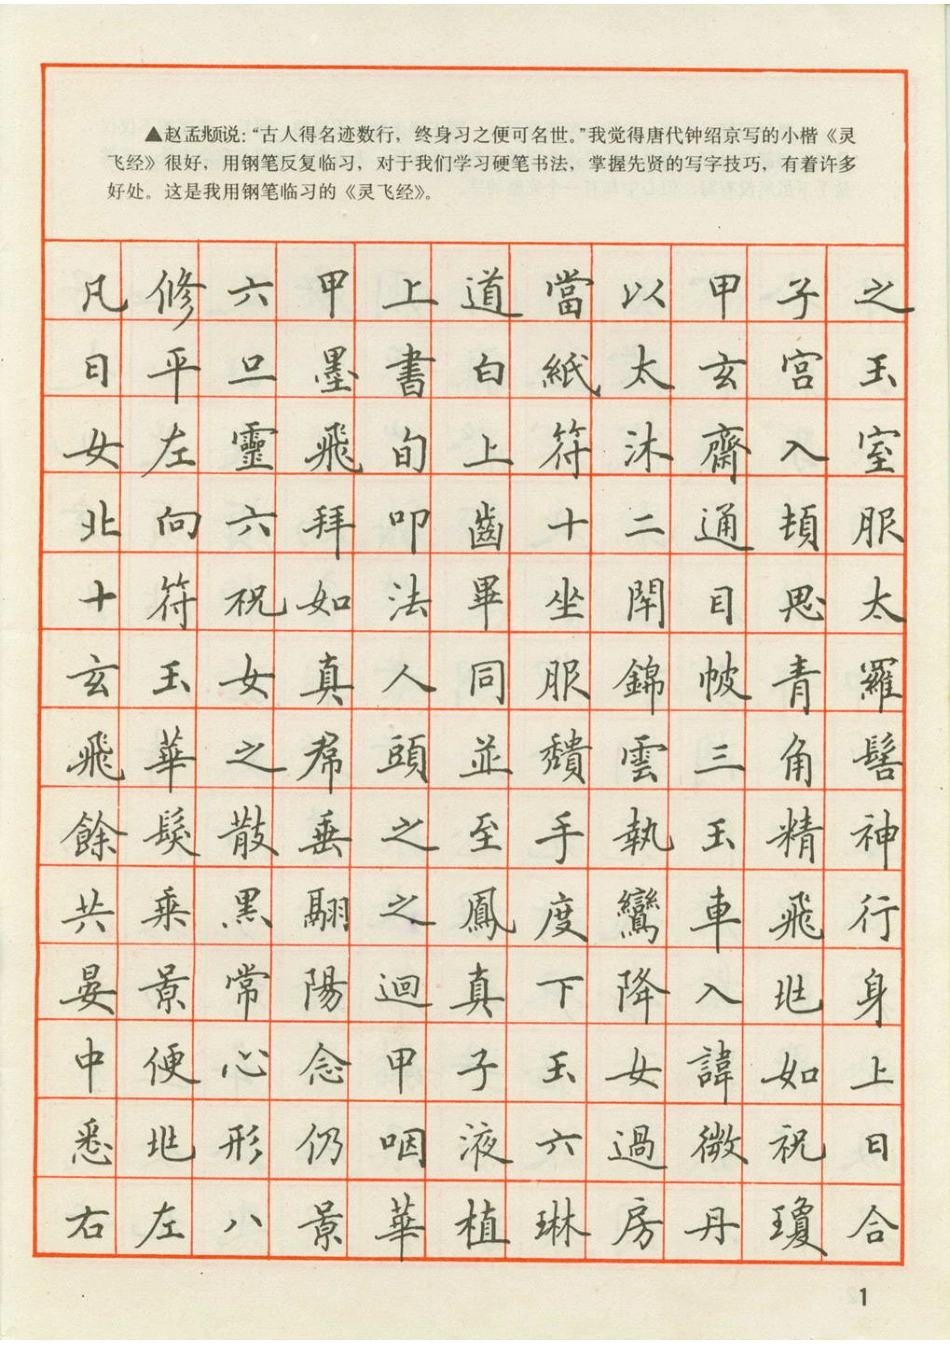 ▲赵孟頫说：“古人得名迹数行，终身习之便可名世。”我觉得唐代钟绍京写的小楷《灵
飞经》很好，用钢笔反复临习，对于我们学习硬笔书法，掌握先贤的写字技巧，有着许多
好处。这是我用钢笔临习的《灵飞经》。
凡修六甲上道當以甲子之
日平旦墨書白紙太玄宮玉
女左靈飛旬上符沐齋入室
北向六拜叩齒十二通頓服
十符祝如法畢坐閇目思太
玄玉女真人同服錦帔青羅
飛華之帬頭並頽雲三角髻
餘髮散垂之至手執玉精神
共乘黑翮之鳳度鸞車飛行
晏景常陽迴真下降入兆身
中便心念甲子玉女諱如上
悉兆形仍咽液六過微祝日
右左八景華植琳房丹瓊合
1